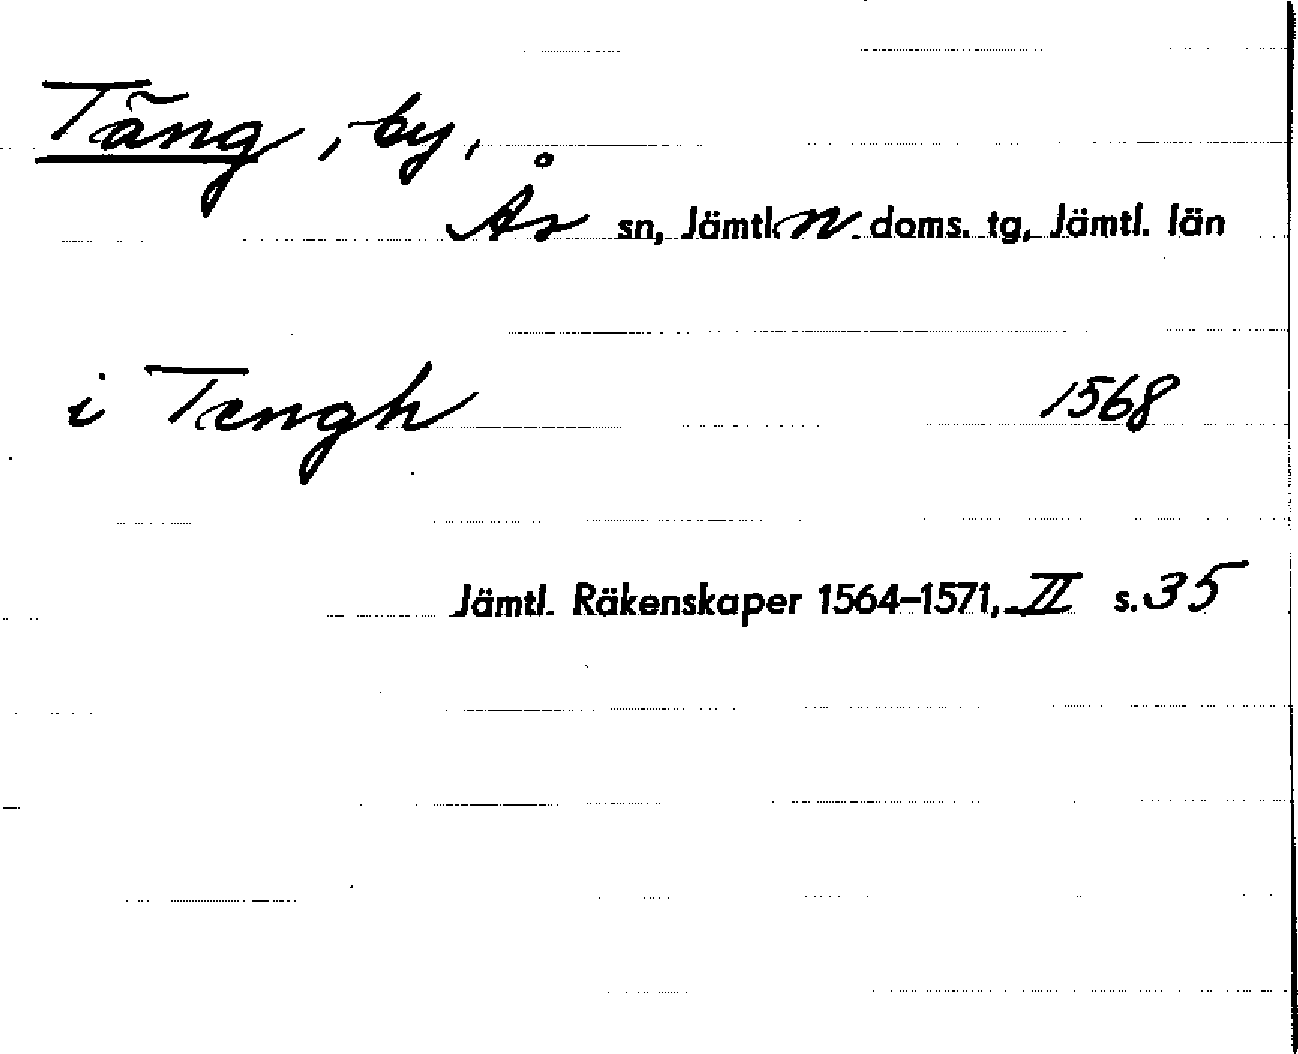 Täng, by,
Ås sn, Jämtl. n. doms. tg, Jämtl. län
i Tengh 1568
Jämtl. Räkenskaper 1564–1571, II s. 35